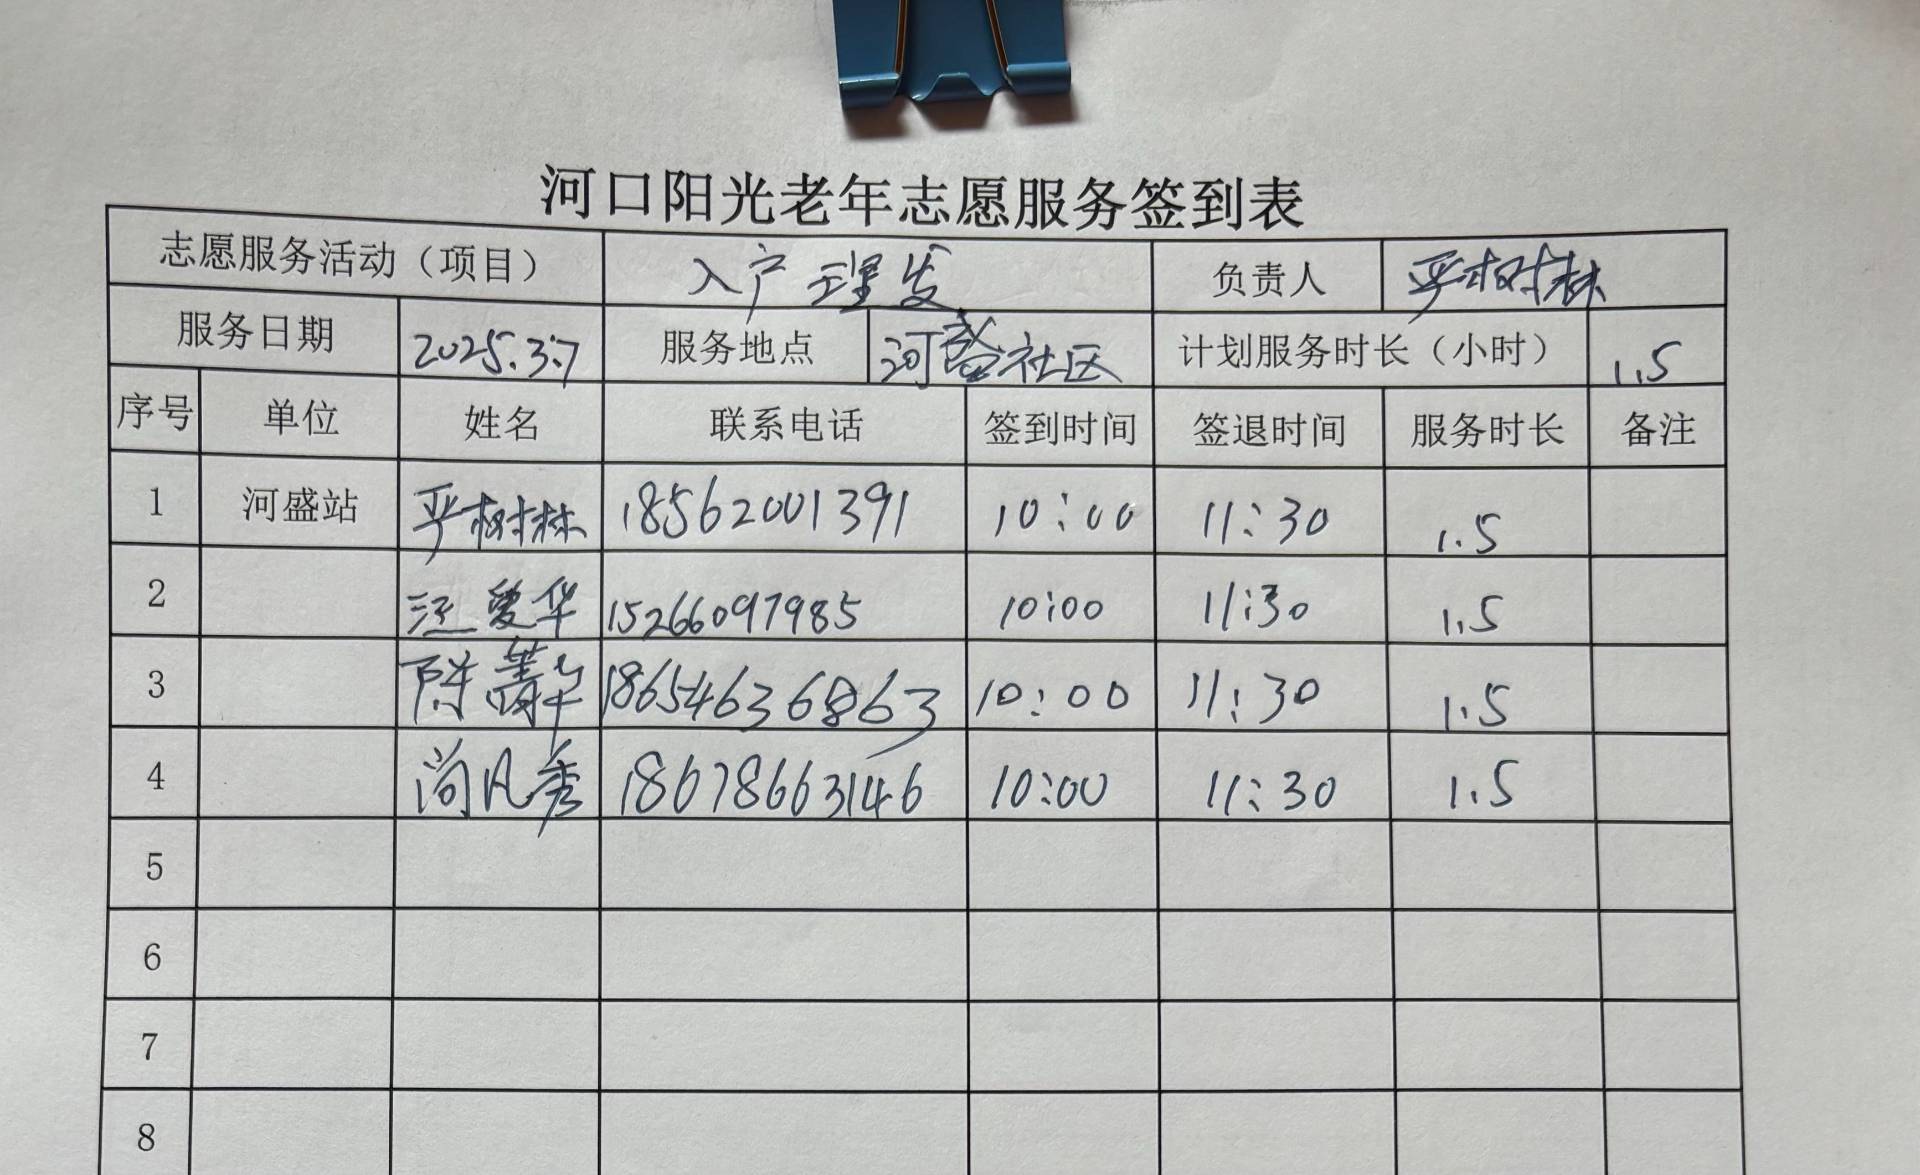 河口阳光老年志愿服务签到表
志愿服务活动（项目） 入户理发 负责人 严树林
服务日期 2025.3.7 服务地点 河盛社区 计划服务时长（小时） 1.5
序号 单位 姓名 联系电话 签到时间 签退时间 服务时长 备注
1 河盛站 严树林 18562001391 10:00 11:30 1.5
2 汪爱华 15266097985 10:00 11:30 1.5
3 陈菁华 18654636863 10:00 11:30 1.5
4 尚凡秀 18678663146 10:00 11:30 1.5
5
6
7
8